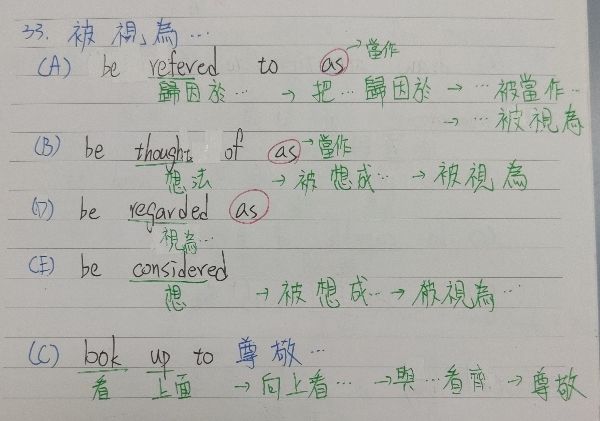 33. 被視為…
(A) be refered to as →當作
歸因於… → 把…歸因於 → …被當作…
→ …被視為
(B) be thought of as →當作
想法 → 被想成… → 被視為
(D) be regarded as
視為…
(E) be considered
想 → 被想成… → 被視為…
(C) look up to 尊敬…
看 上面 → 向上看… → 與…看齊 → 尊敬